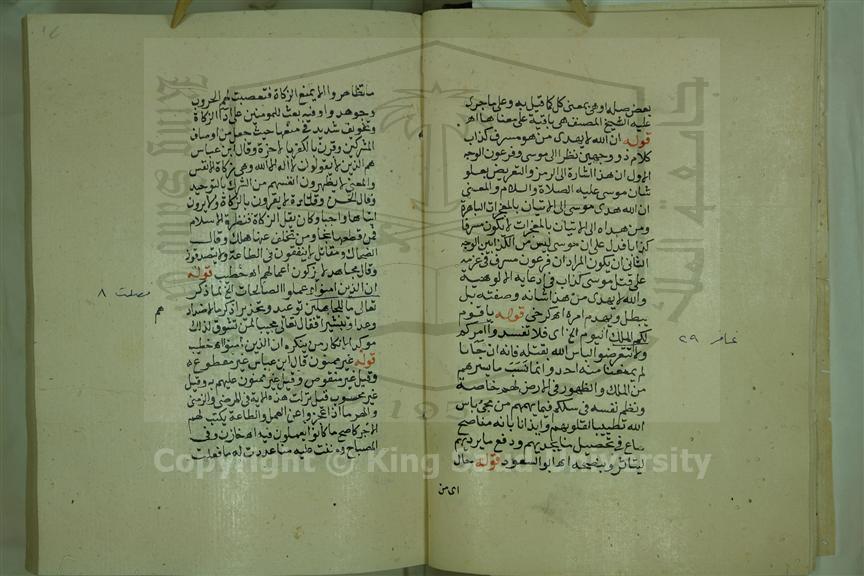 بعض صلة اوهى بمعنى كل كما قيل به وعلى ما جرى
عليه الشيخ المصنف هى باقية على معناها اهـ
قوله ان الله لا يهدى من هو مسرف كذاب
كلام ذو وجهين نظرا الى موسى وفرعون الوجه
الاول ان هذا اشارة الى الرمز والتعريض بعلو
شان موسى عليه الصلاة والسلام والمعنى
ان الله هدى موسى الى الاتيان بالمعجزات الباهرة
ومن هداه الى الاتيان بالمعجزات لا يكون مسرفا
كذابا فدل على ان موسى ليس من الكذابين الوجه
الثانى ان يكون المراد ان فرعون مسرف فى عزمه
على قتل موسى كذاب فى ادعاءه الالوهية
والله لا يهدى من هذا شانه وصفته بل
يبطله ويهدم امره اهـ كرخى قوله يا قوم
لكم الملك اليوم الخ اى فلا تفسدوا امركم
ولا تتعرضوا لباس الله بقتله فانه ان جآءنا
لم يمنعنا منه احد وانما نسب ما يسرهم
من الملك والظهور فى الارض لهم خاصة
ونظم نفسه فى سلكهم فيما يهمهم من مجئ باس
الله تطييبا لقلوبهم وايذانا بانه مناصح
ساع فى تحصيل ما يجديهم ودفع ما يرديهم
ليتاثروا بنصحه اهـ ابو السعود قوله حال
اى من
غافر ٢٩
ما تظاهروا الا بمنع الزكاة فنصبت لهم الحروب
وجوهدوا وفيه بعث للمؤمنين على اداء الزكاة
وتخويف شديد فى منعها حيث جعل من اوصاف
المشركين وقرن بالكفر بالاخرة وقال ابن عباس
هم الذين لا يقولون لا اله الا الله وهى زكاة الانفس
والمعنى لا يطهرون انفسهم من الشرك بالتوحيد
وقال الحسن وقتادة لا يقرون بالزكاة ولا يرون
ايتاءها واجبا وكان يقال الزكاة قنطرة الاسلام
فمن قطعها نجا ومن تخلف عنها هلك وقال
الضحاك ومقاتل لا ينفقون فى الطاعة ولا يتصدقون
وقال مجاهد لا يزكون اعمالهم اهـ خطيب قوله
ان الذين امنوا وعملوا الصالحات الخ لما ذكر
تعالى ما للجاهلين توعيد وتحذيرا ذكر ما لاضدادهم
وعدا وتبشيرا فقال تعالى مجيبا لمن تشوق لذلك
موكدا لانكار من ينكره ان الذين امنوا اهـ خطيب
قوله غير ممنون قال ابن عباس غير مقطوع
وقيل غير منقوص وقيل غير ممنون عليهم به وقيل
غير محسوب قيل نزلت هذه الاية فى المرضى والزمنى
والهرما اذا عجزوا عن العمل والطاعة يكتب لهم
الاجر كاصح ما كانوا يعملون فيه اهـ خازن وفى
المصباح ومننت عليه منا عددت له ما فعلت
فصلت ٨